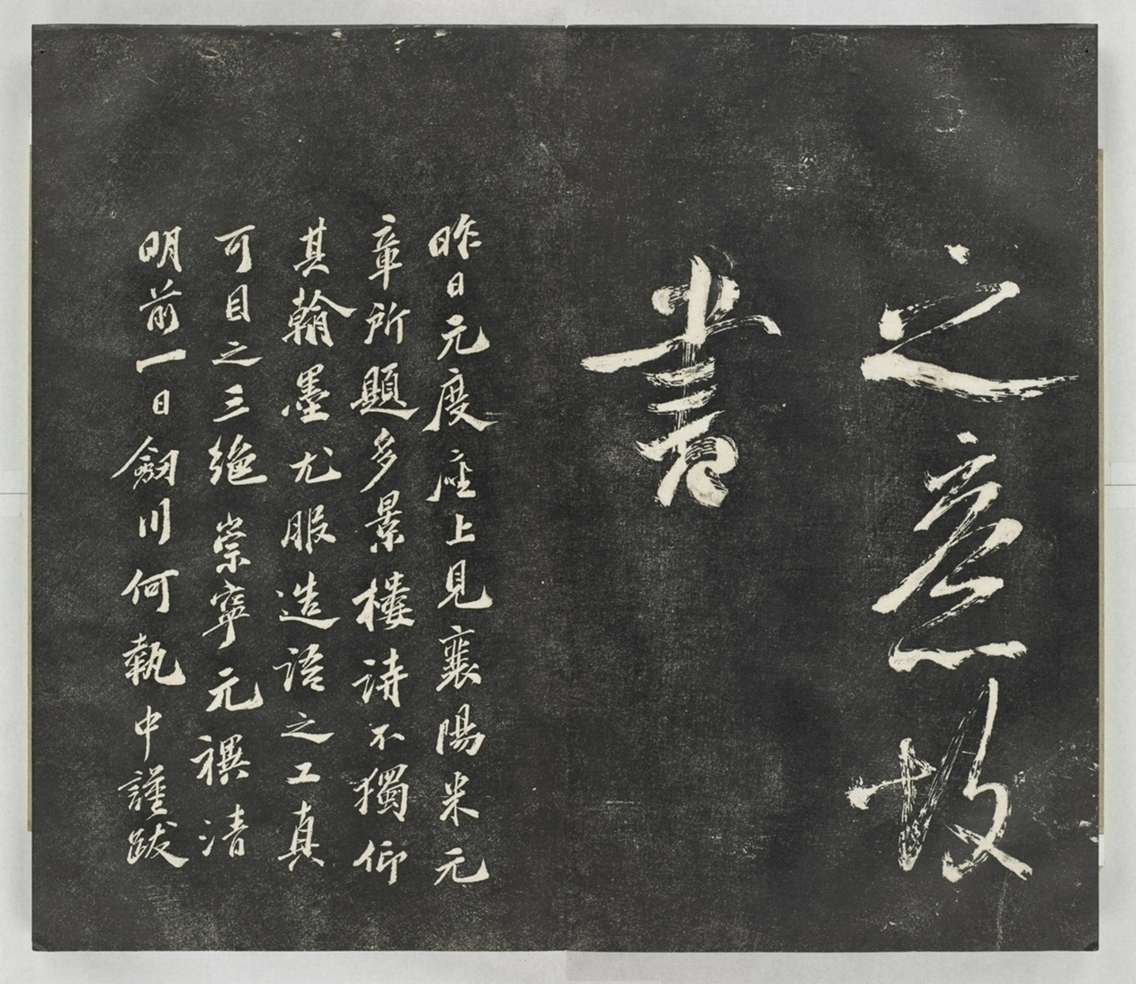 之意故
書
昨日元度座上見襄陽米元
章所題多景樓詩不獨仰
其翰墨尤服造語之工真
可目之三絶崇寧元禩清
明前一日劒川何執中謹跋